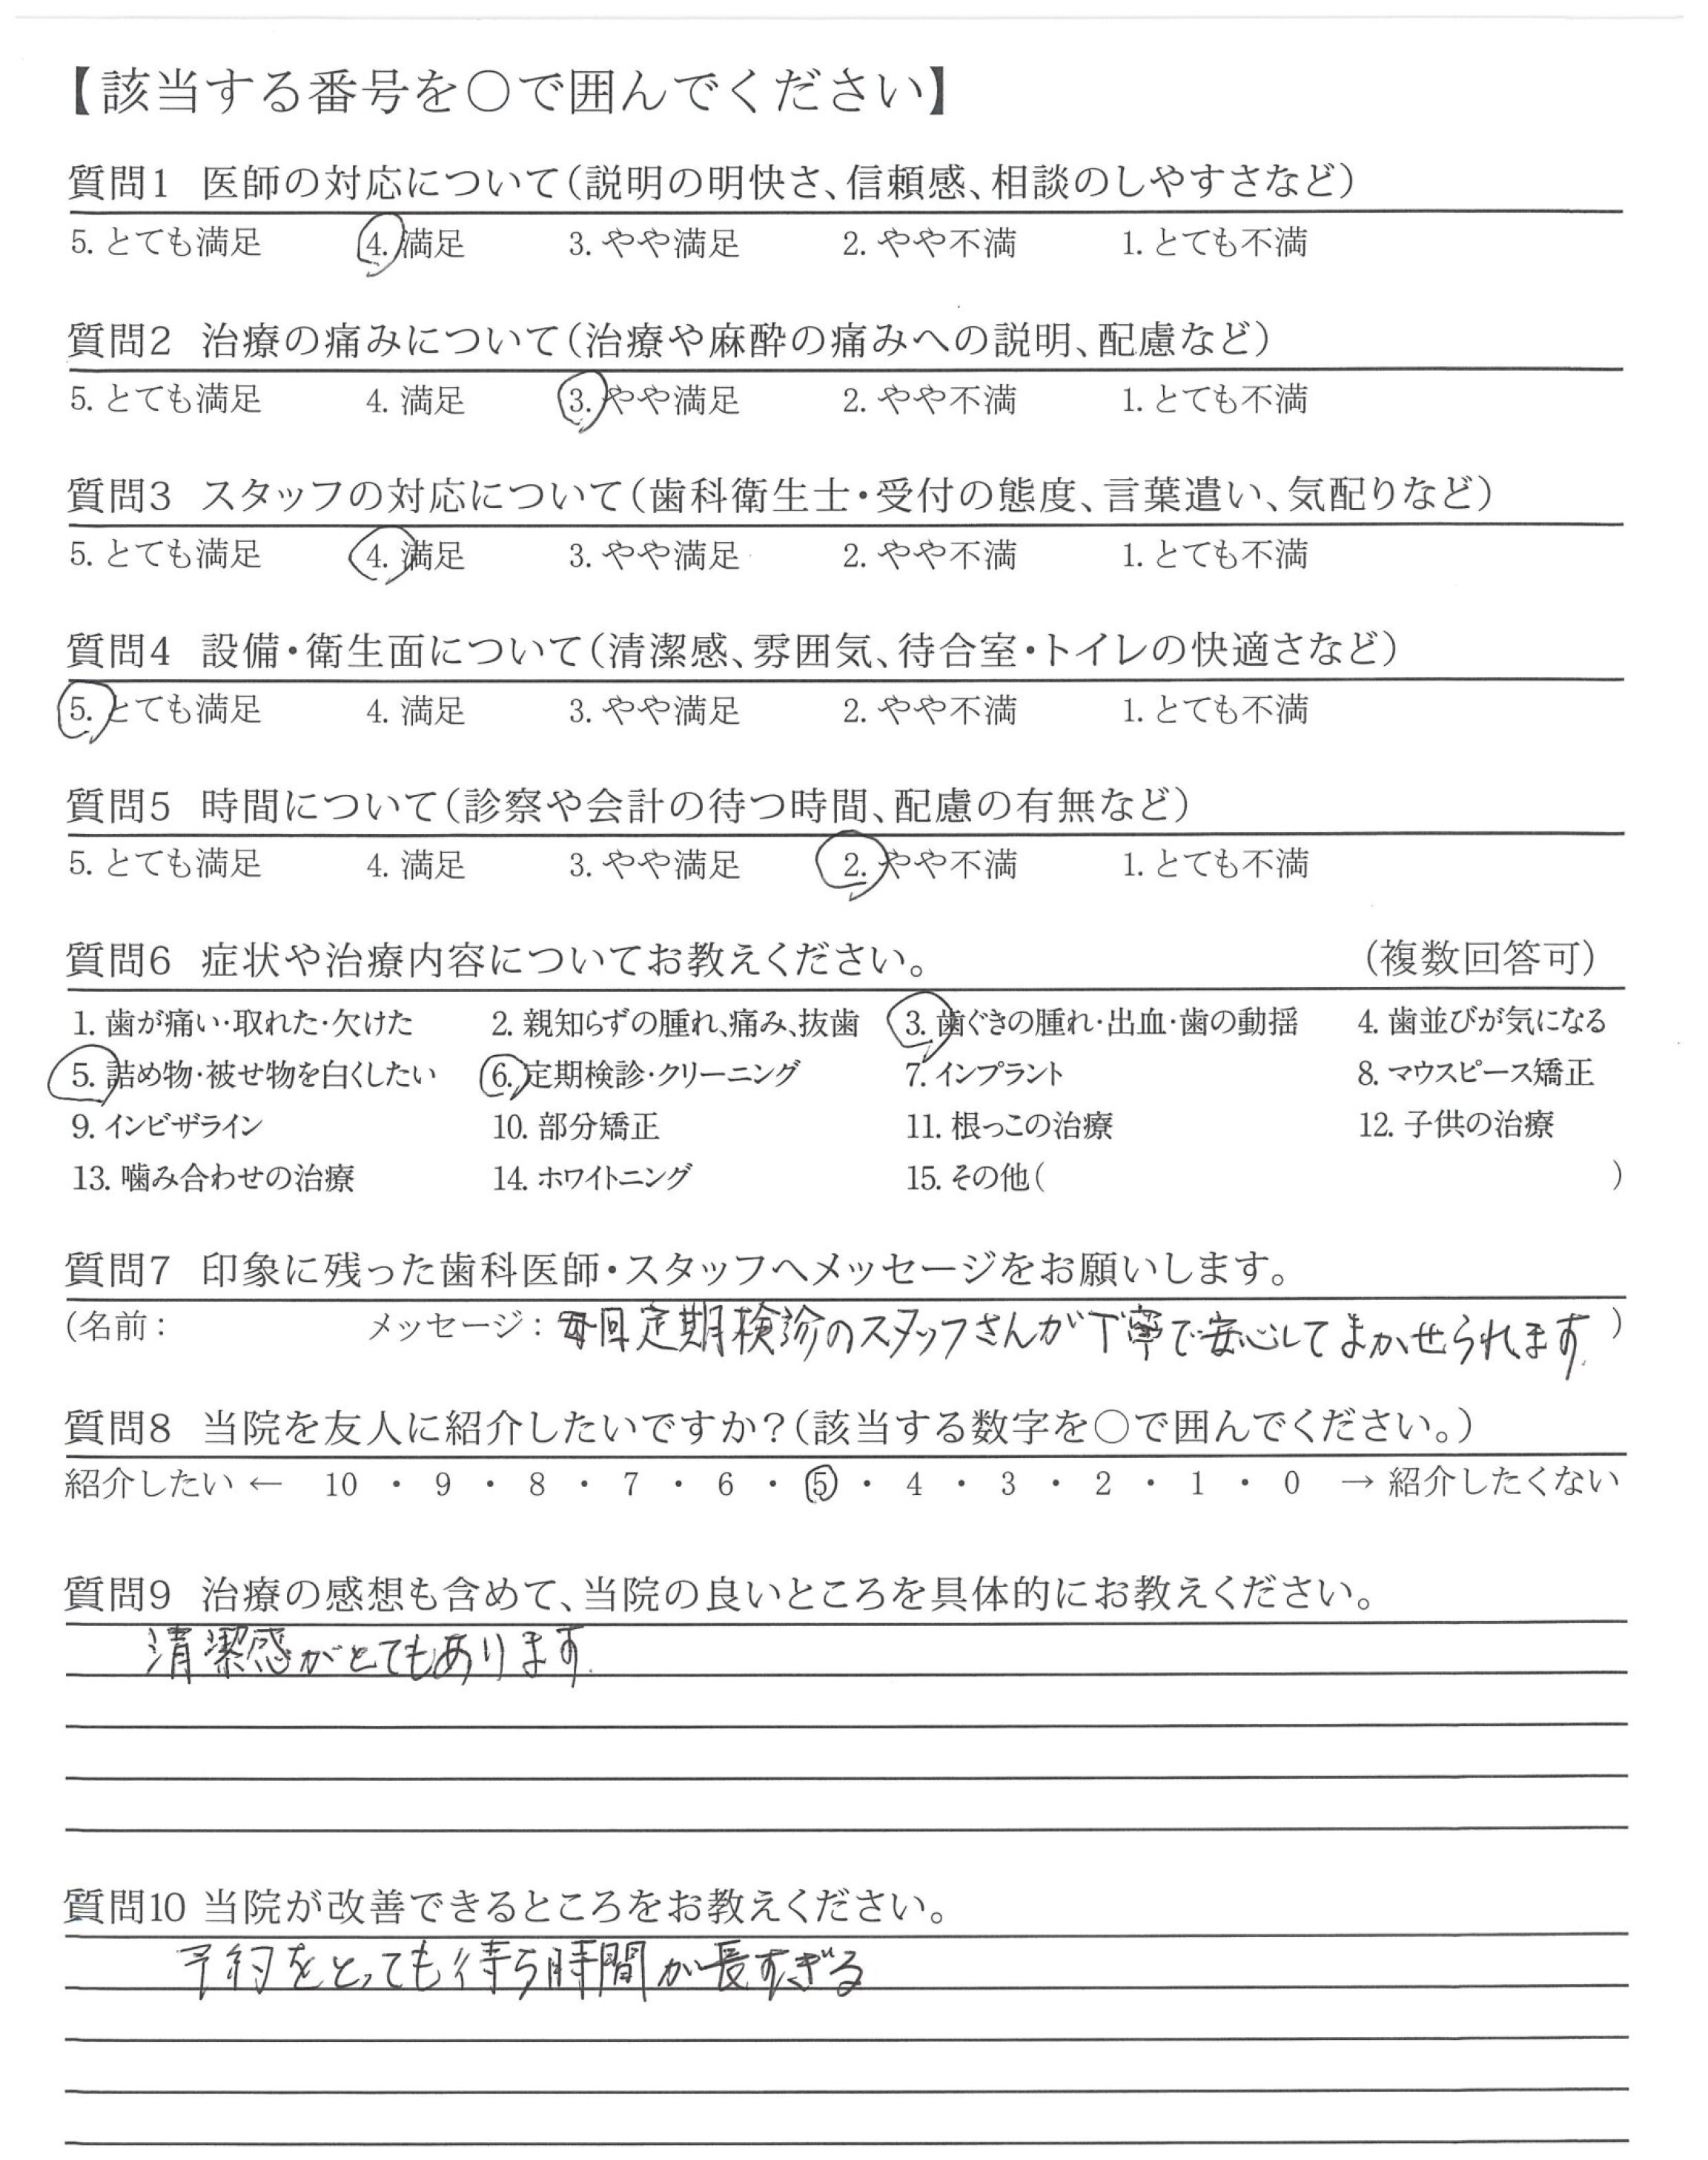 【該当する番号を○で囲んでください】
質問1 医師の対応について（説明の明快さ、信頼感、相談のしやすさなど）
5. とても満足 4. 満足 3. やや満足 2. やや不満 1. とても不満
質問2 治療の痛みについて（治療や麻酔の痛みへの説明、配慮など）
5. とても満足 4. 満足 3. やや満足 2. やや不満 1. とても不満
質問3 スタッフの対応について（歯科衛生士・受付の態度、言葉遣い、気配りなど）
5. とても満足 4. 満足 3. やや満足 2. やや不満 1. とても不満
質問4 設備・衛生面について（清潔感、雰囲気、待合室・トイレの快適さなど）
5. とても満足 4. 満足 3. やや満足 2. やや不満 1. とても不満
質問5 時間について（診察や会計の待つ時間、配慮の有無など）
5. とても満足 4. 満足 3. やや満足 2. やや不満 1. とても不満
質問6 症状や治療内容についてお教えください。 （複数回答可）
1. 歯が痛い・取れた・欠けた 2. 親知らずの腫れ、痛み、抜歯 3. 歯ぐきの腫れ・出血・歯の動揺 4. 歯並びが気になる
5. 詰め物・被せ物を白くしたい 6. 定期検診・クリーニング 7. インプラント 8. マウスピース矯正
9. インビザライン 10. 部分矯正 11. 根っこの治療 12. 子供の治療
13. 噛み合わせの治療 14. ホワイトニング 15. その他（ ）
質問7 印象に残った歯科医師・スタッフへメッセージをお願いします。
（名前： メッセージ：毎回定期検診のスタッフさんが丁寧で安心してまかせられます。）
質問8 当院を友人に紹介したいですか？（該当する数字を○で囲んでください。）
紹介したい ← 10 ・ 9 ・ 8 ・ 7 ・ 6 ・ 5 ・ 4 ・ 3 ・ 2 ・ 1 ・ 0 → 紹介したくない
質問9 治療の感想も含めて、当院の良いところを具体的にお教えください。
清潔感がとてもあります。
質問10 当院が改善できるところをお教えください。
予約をとっても待ち時間が長すぎる